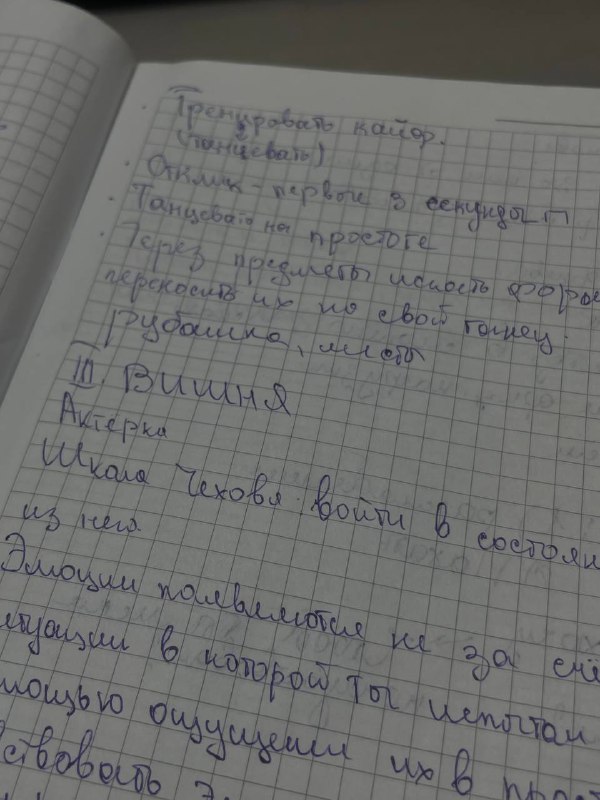 Тренировать кайф.
(танцевать)
Отклик - первые 3 секунды
Танцевать на простоте
Через предметы искать фор
переносить их на свой танец.
Рубашка, листы
III. Вишня
Актерка
Школа Чехова: войти в состоян
из него
Эмоции появляются не за счё
итуации в которой ты испытал
мощью ощущении их в прост
ствовать э